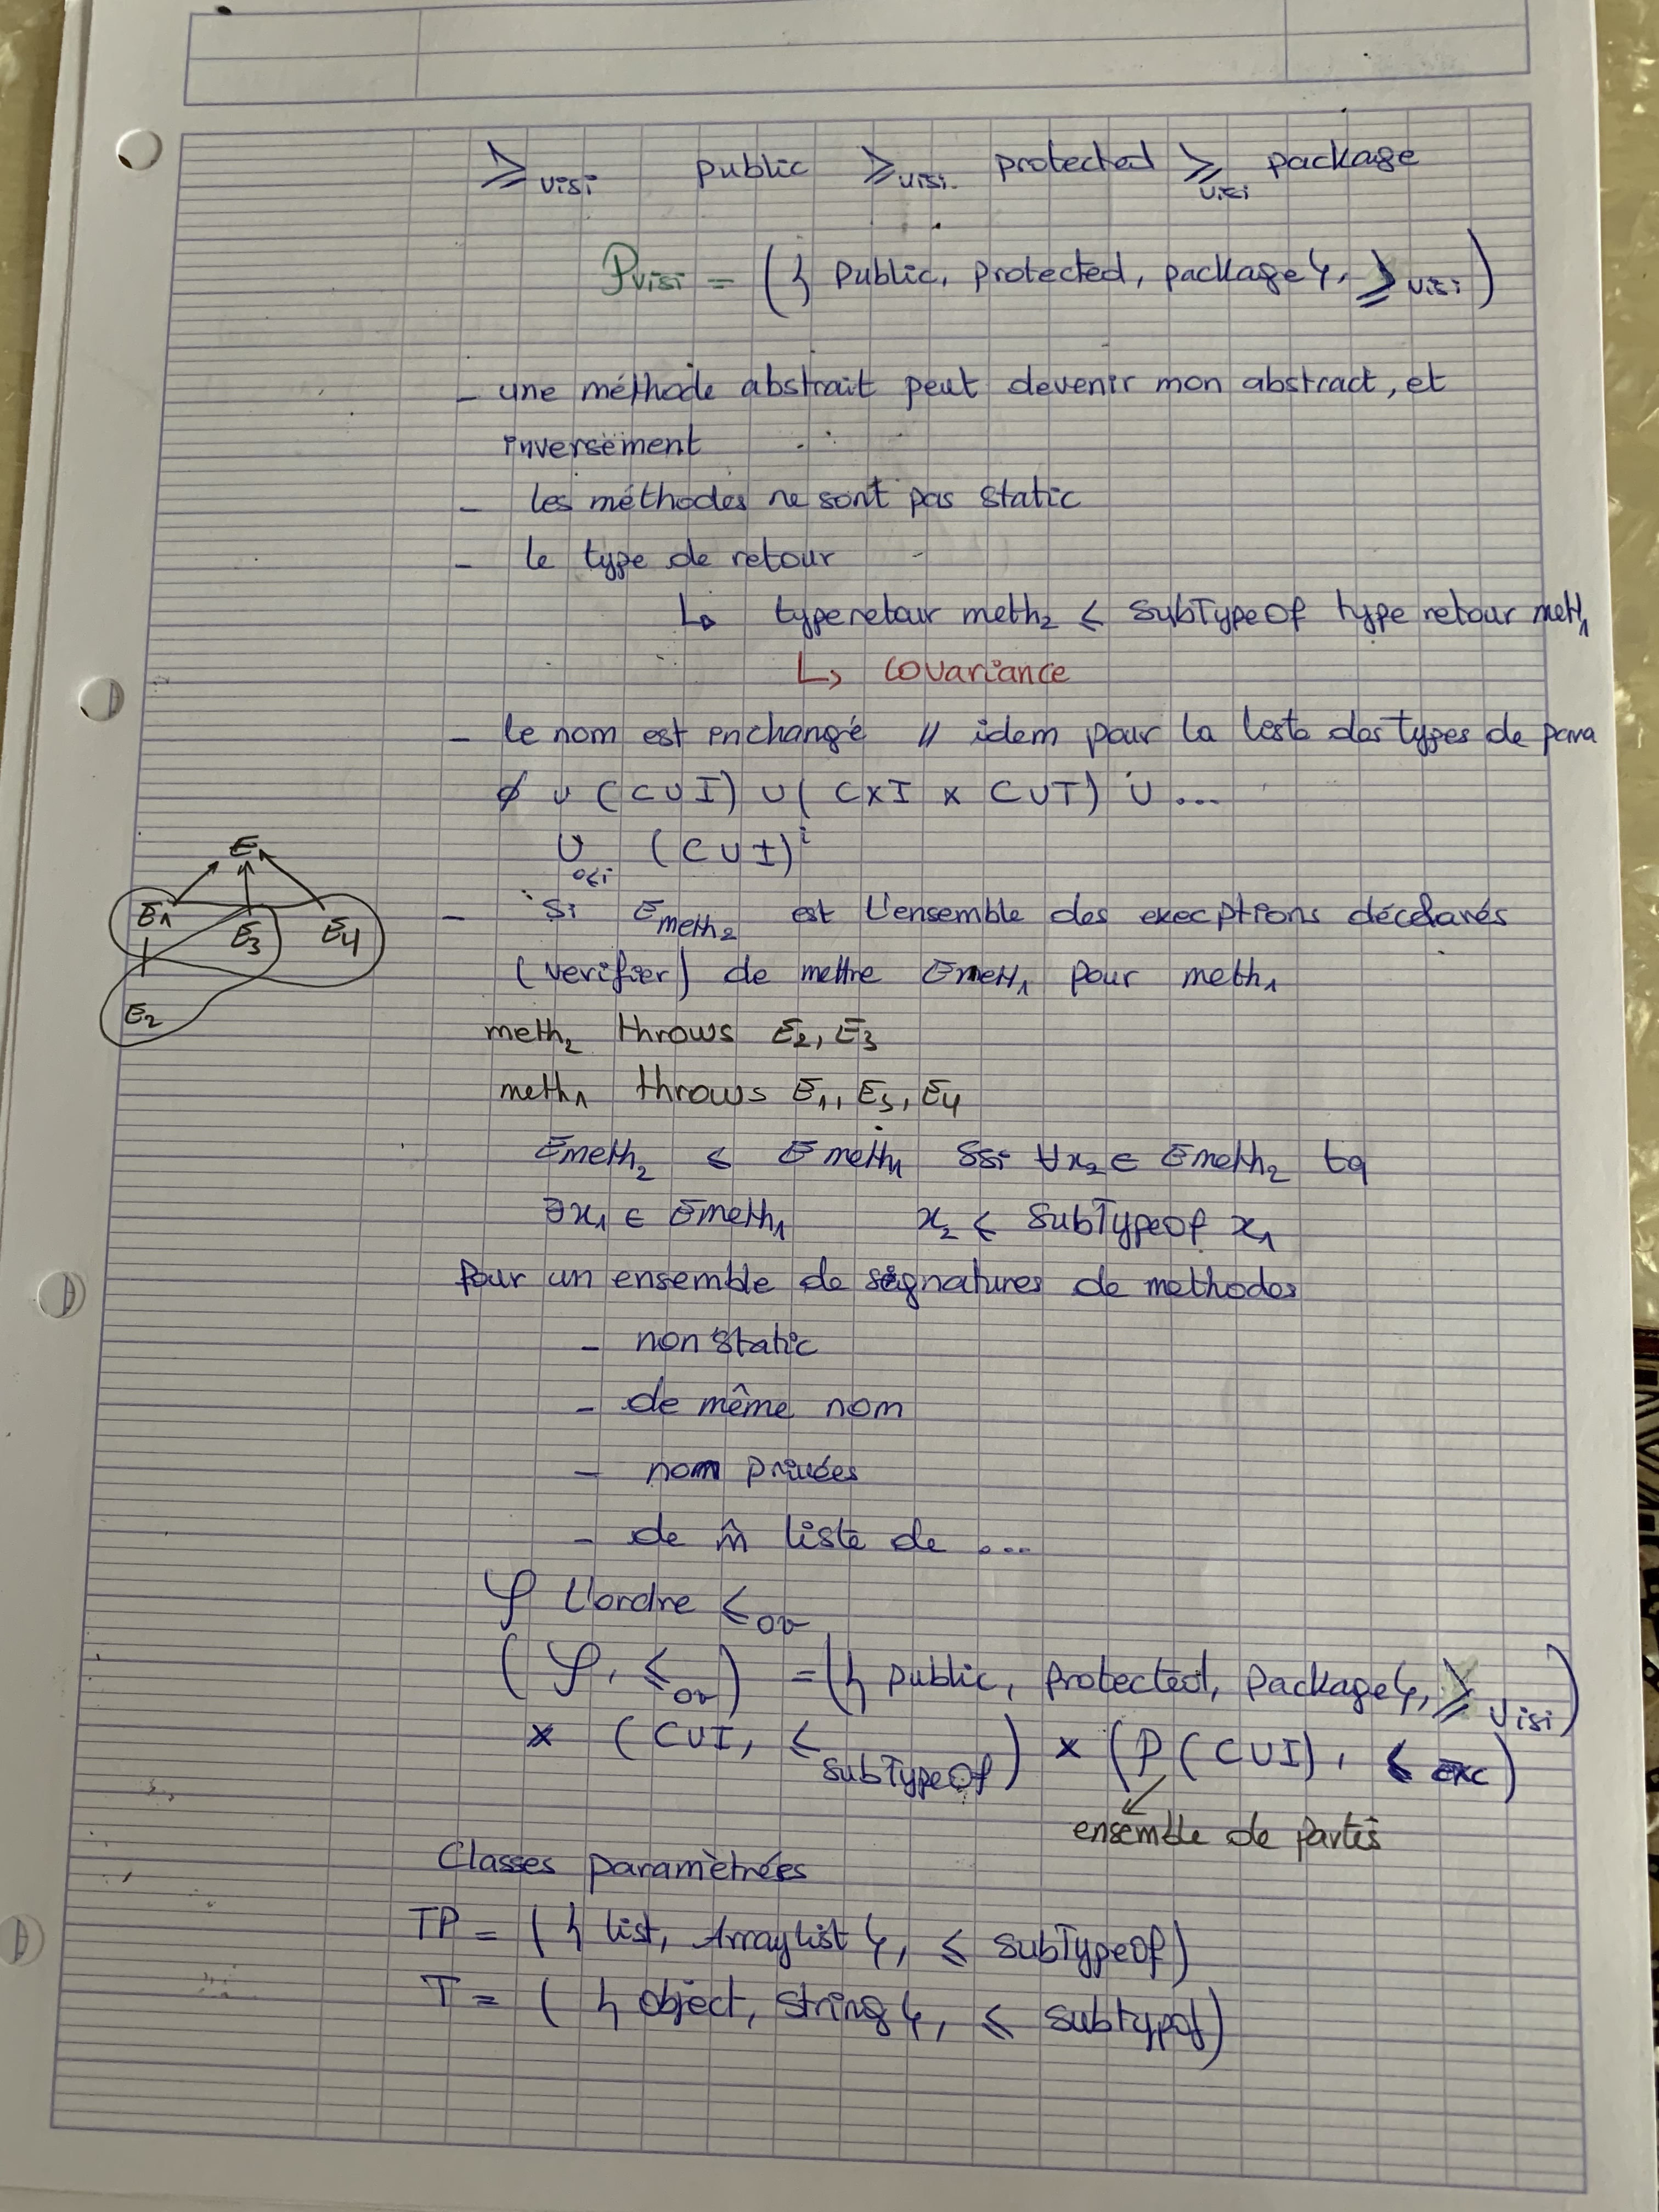 ≥visi public ≥visi. protected ≥visi package
Pvisi = ({ public, protected, package }, ≥visi)
- une méthode abstrait peut devenir mon abstract, et
inversement
- les méthodes ne sont pas static
- le type de retour
↳ type retour meth₂ ≤ SubTypeOf type retour meth₁
↳ covariance
- le nom est enchangé // idem pour la liste des types de para
∅ ∪ (C∪I) ∪ (C×I × C∪I) ∪ ...
∪ 0≤i (C∪I)ⁱ
E
E1 E3 E4
E2
- Si Emeth₂ est l'ensemble des execptions décélarés
(verifier) de mettre Emeth₁ pour meth₁
meth₂ throws E2, E3
meth₁ throws E1, E3, E4
Emeth₂ ≤ Emeth₁ SSi ∀x₂ ∈ Emeth₂ tq
∃x₁ ∈ Emeth₁ x₂ ≤ SubTypeOf x₁
Pour un ensemble de signatures de methodes
- non static
- de même nom
- nom privées
- de m̂ liste de ...
𝒮 L'ordre ≤or
(𝒮, ≤or) = ({ public, protected, package }, ≥visi)
× (C∪I, ≤SubTypeOf) × (P(C∪I), ≤exc)
ensemble de partis
Classes paramètrées
TP = ({ list, Arraylist }, ≤ SubTypeOf)
T = ({ object, string }, ≤ subtypof)